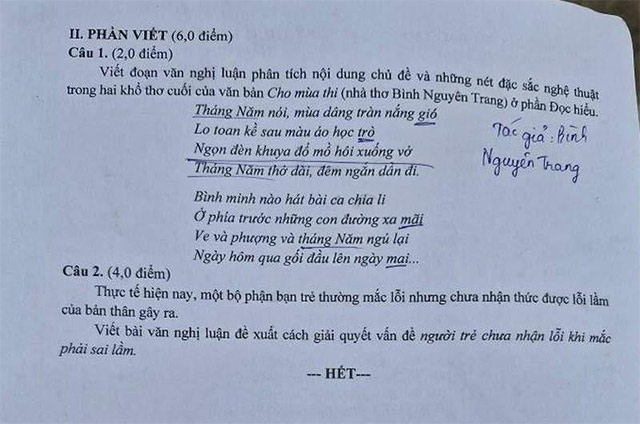 II. PHẦN VIẾT (6,0 điểm)
Câu 1. (2,0 điểm)
Viết đoạn văn nghị luận phân tích nội dung chủ đề và những nét đặc sắc nghệ thuật
trong hai khổ thơ cuối của văn bản Cho mùa thi (nhà thơ Bình Nguyên Trang) ở phần Đọc hiểu.
Tháng Năm nói, mùa dâng tràn nắng gió
Lo toan kề sau màu áo học trò
Ngọn đèn khuya đổ mồ hôi xuống vở
Tháng Năm thở dài, đêm ngắn dần đi.
Tác giả: Bình
Nguyên Trang
Bình minh nào hát bài ca chia li
Ở phía trước những con đường xa mãi
Ve và phượng và tháng Năm ngủ lại
Ngày hôm qua gối đầu lên ngày mai...
Câu 2. (4,0 điểm)
Thực tế hiện nay, một bộ phận bạn trẻ thường mắc lỗi nhưng chưa nhận thức được lỗi lầm
của bản thân gây ra.
Viết bài văn nghị luận đề xuất cách giải quyết vấn đề người trẻ chưa nhận lỗi khi mắc
phải sai lầm.
--- HẾT---